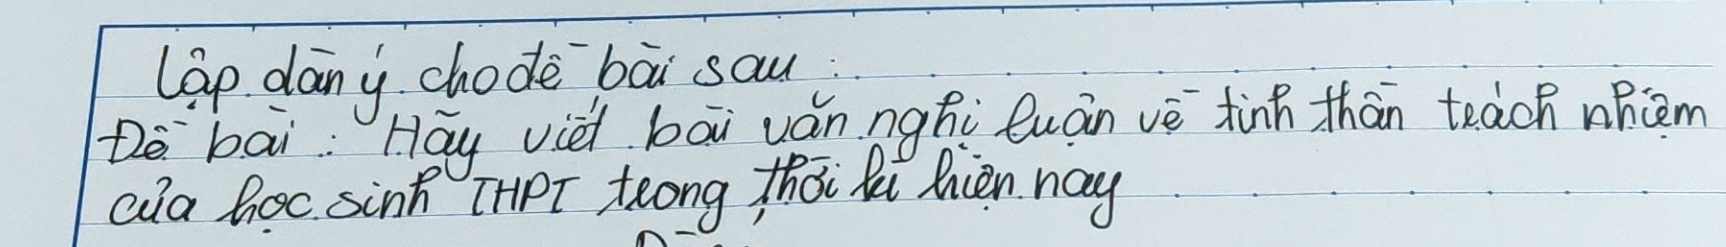 Lập dàn ý cho đề bài sau:
Đề bài: Hãy viết bài văn nghị luận về tinh thần trách nhiệm
của học sinh THPT trong thời kì hiện nay